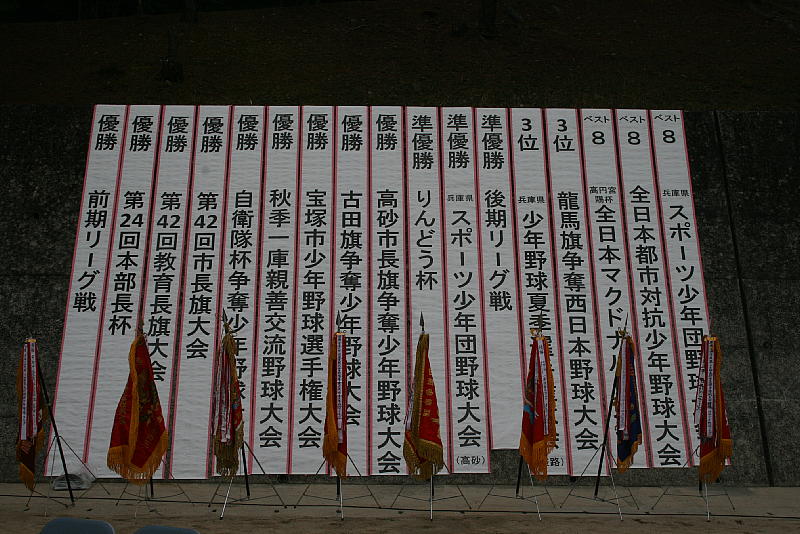 優勝 前期リーグ戦
優勝 第24回本部長杯
優勝 第42回教育長旗大会
優勝 第42回市長旗大会
優勝 自衛隊杯争奪少年野
優勝 秋季一庫親善交流野球大会
優勝 宝塚市少年野球選手権大会
優勝 古田旗争奪少年野球大会
優勝 高砂市長旗争奪少年野球大会
準優勝 りんどう杯
準優勝 兵庫県 スポーツ少年団野球大会 (高砂)
準優勝 後期リーグ戦
3位 兵庫県 少年野球夏季
3位 龍馬旗争奪西日本野球大会
ベスト8 高円宮賜杯 全日本マクドナル
ベスト8 全日本都市対抗少年野球大会
ベスト8 兵庫県 スポーツ少年団野球